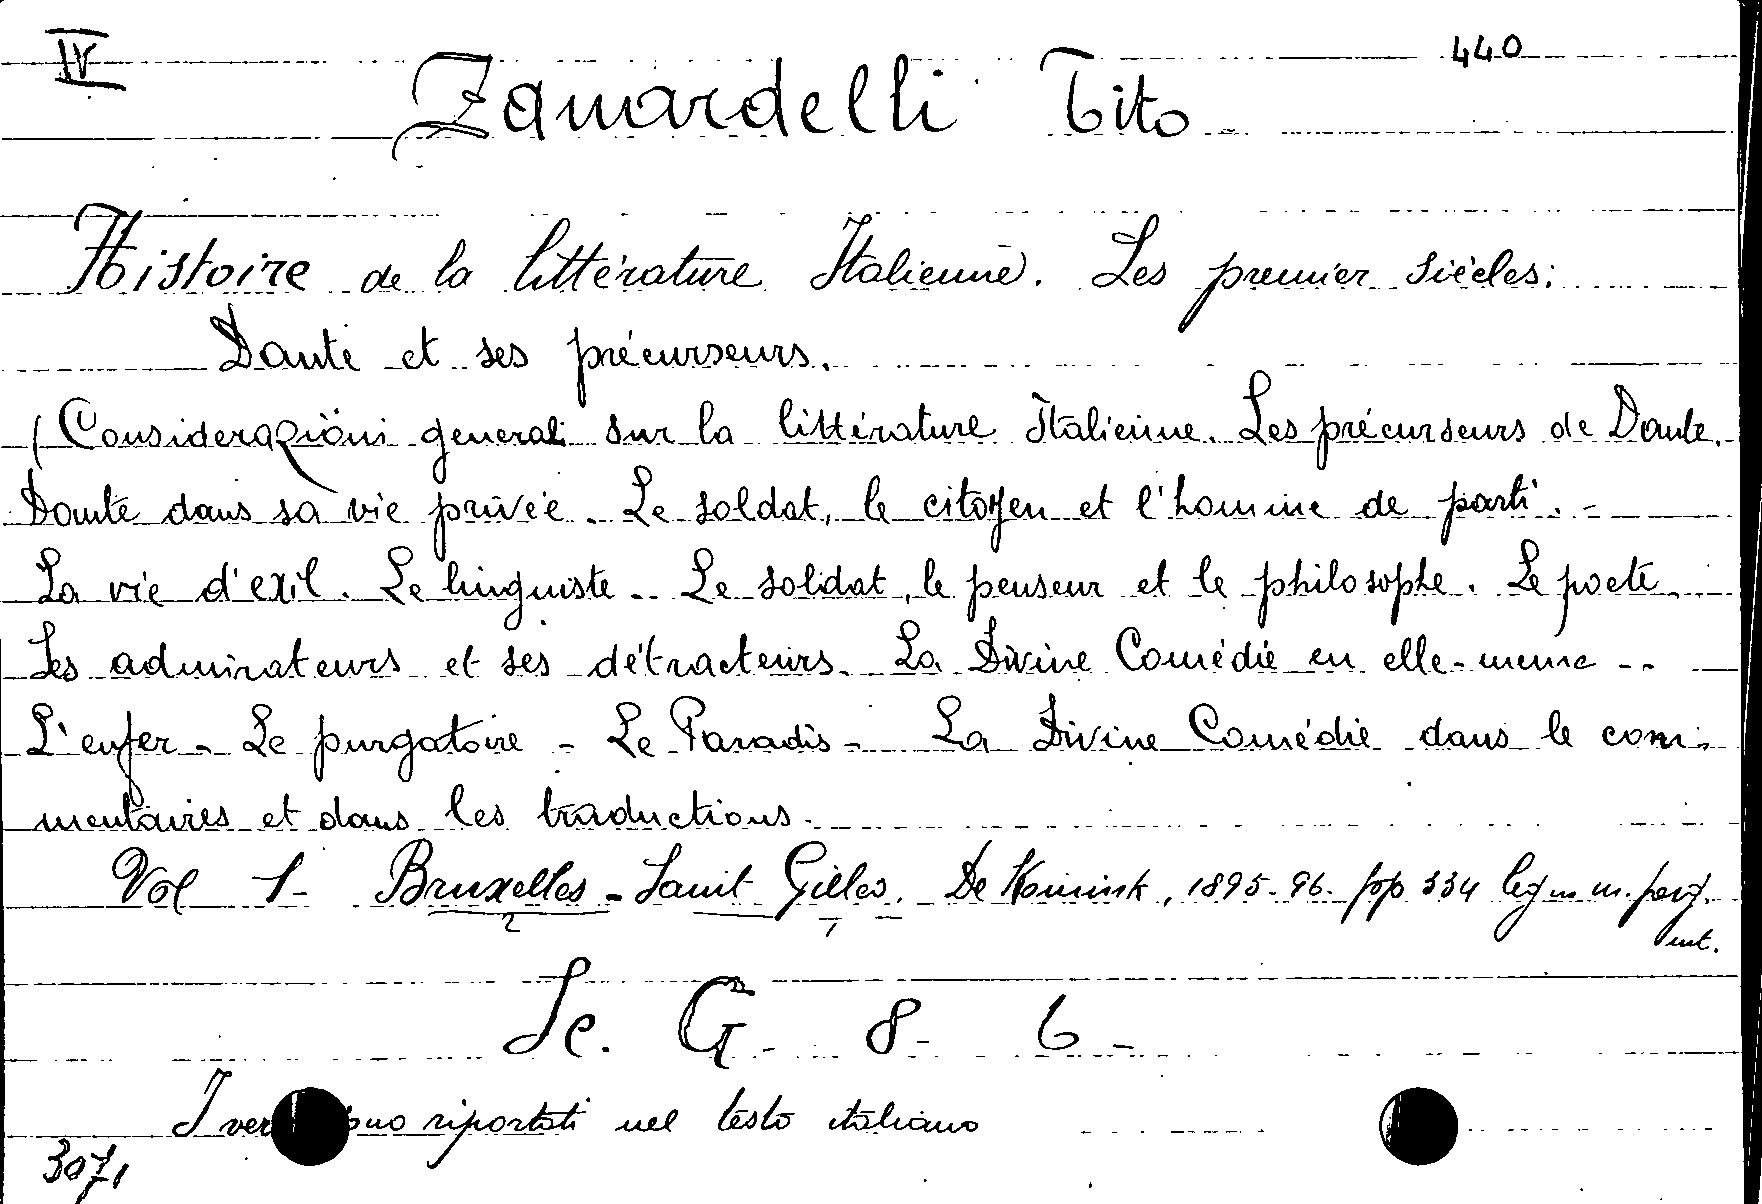 IV
440
Zanardelli Tito
Histoire de la littérature Italienne. Les premier siècles:
Dante et ses précurseurs.
(Considerazioni generali sur la littérature Italienne. Les précurseurs de Dante.
Dante dans sa vie privée. Le soldat, le citoyen et l'homme de parti. -
La vie d'exil. Le linguiste.. Le soldat, le penseur et le philosophe. Le poete.
Ses admirateurs et ses détracteurs. La Divine Comédie en elle-meme --
L'enfer - Le purgatoire - Le Paradis - La Divine Comédie dans le com-
mentaires et dans les traductions.
Vol 1- Bruxelles - Saint Gilles. De 1895-96. pp 334 leg in m. perg.
int.
Sc. G - 8 - 6 -
I ver riportati nel testo italiano
3071